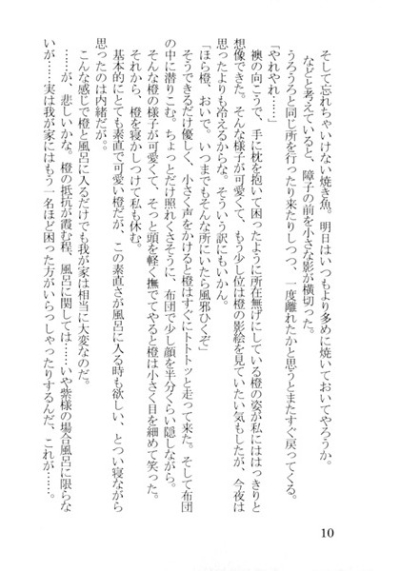 そして忘れちゃいけない焼き魚。明日はいつもより多めに焼いておいてやろうか。
などと考えていると、障子の前を小さな影が横切った。
うろうろと同じ所を行ったり来たりしつつ、一度離れたかと思うとまたすぐ戻ってくる。
「やれやれ……」
襖の向こうで、手に枕を抱いて困ったように所在無げにしている橙の姿が私にははっきりと
想像できた。そんな様子が可愛くて、もう少し位は橙の影絵を見ていたい気もしたが、今夜は
思ったよりも冷えるからな。そういう訳にもいかん。
「ほら橙、おいで。いつまでもそんな所にいたら風邪ひくぞ」
そうできるだけ優しく、小さく声をかけると橙はすぐにトトトトッと走って来た。そして布団
の中に潜りこむ。ちょっとだけ照れくさそうに、布団で少し顔を半分くらい隠しながら。
そんな橙の様子が可愛くて、そっと頭を軽く撫でてやると橙は小さく目を細めて笑った。
それから、橙を寝かしつけて私も休む。
基本的にとても素直で可愛い橙だが、この素直さが風呂に入る時も欲しい、とつい寝ながら
思ったのは内緒だが。
こんな感じで橙と風呂に入るだけでも我が家は相当に大変なのだ。
……が、悲しいかな。橙の抵抗が霞む程、風呂に関しては……いや紫様の場合風呂に限らな
いが……実は我が家にはもう一名ほど困った方がいらっしゃったりするんだ、これが……。
10